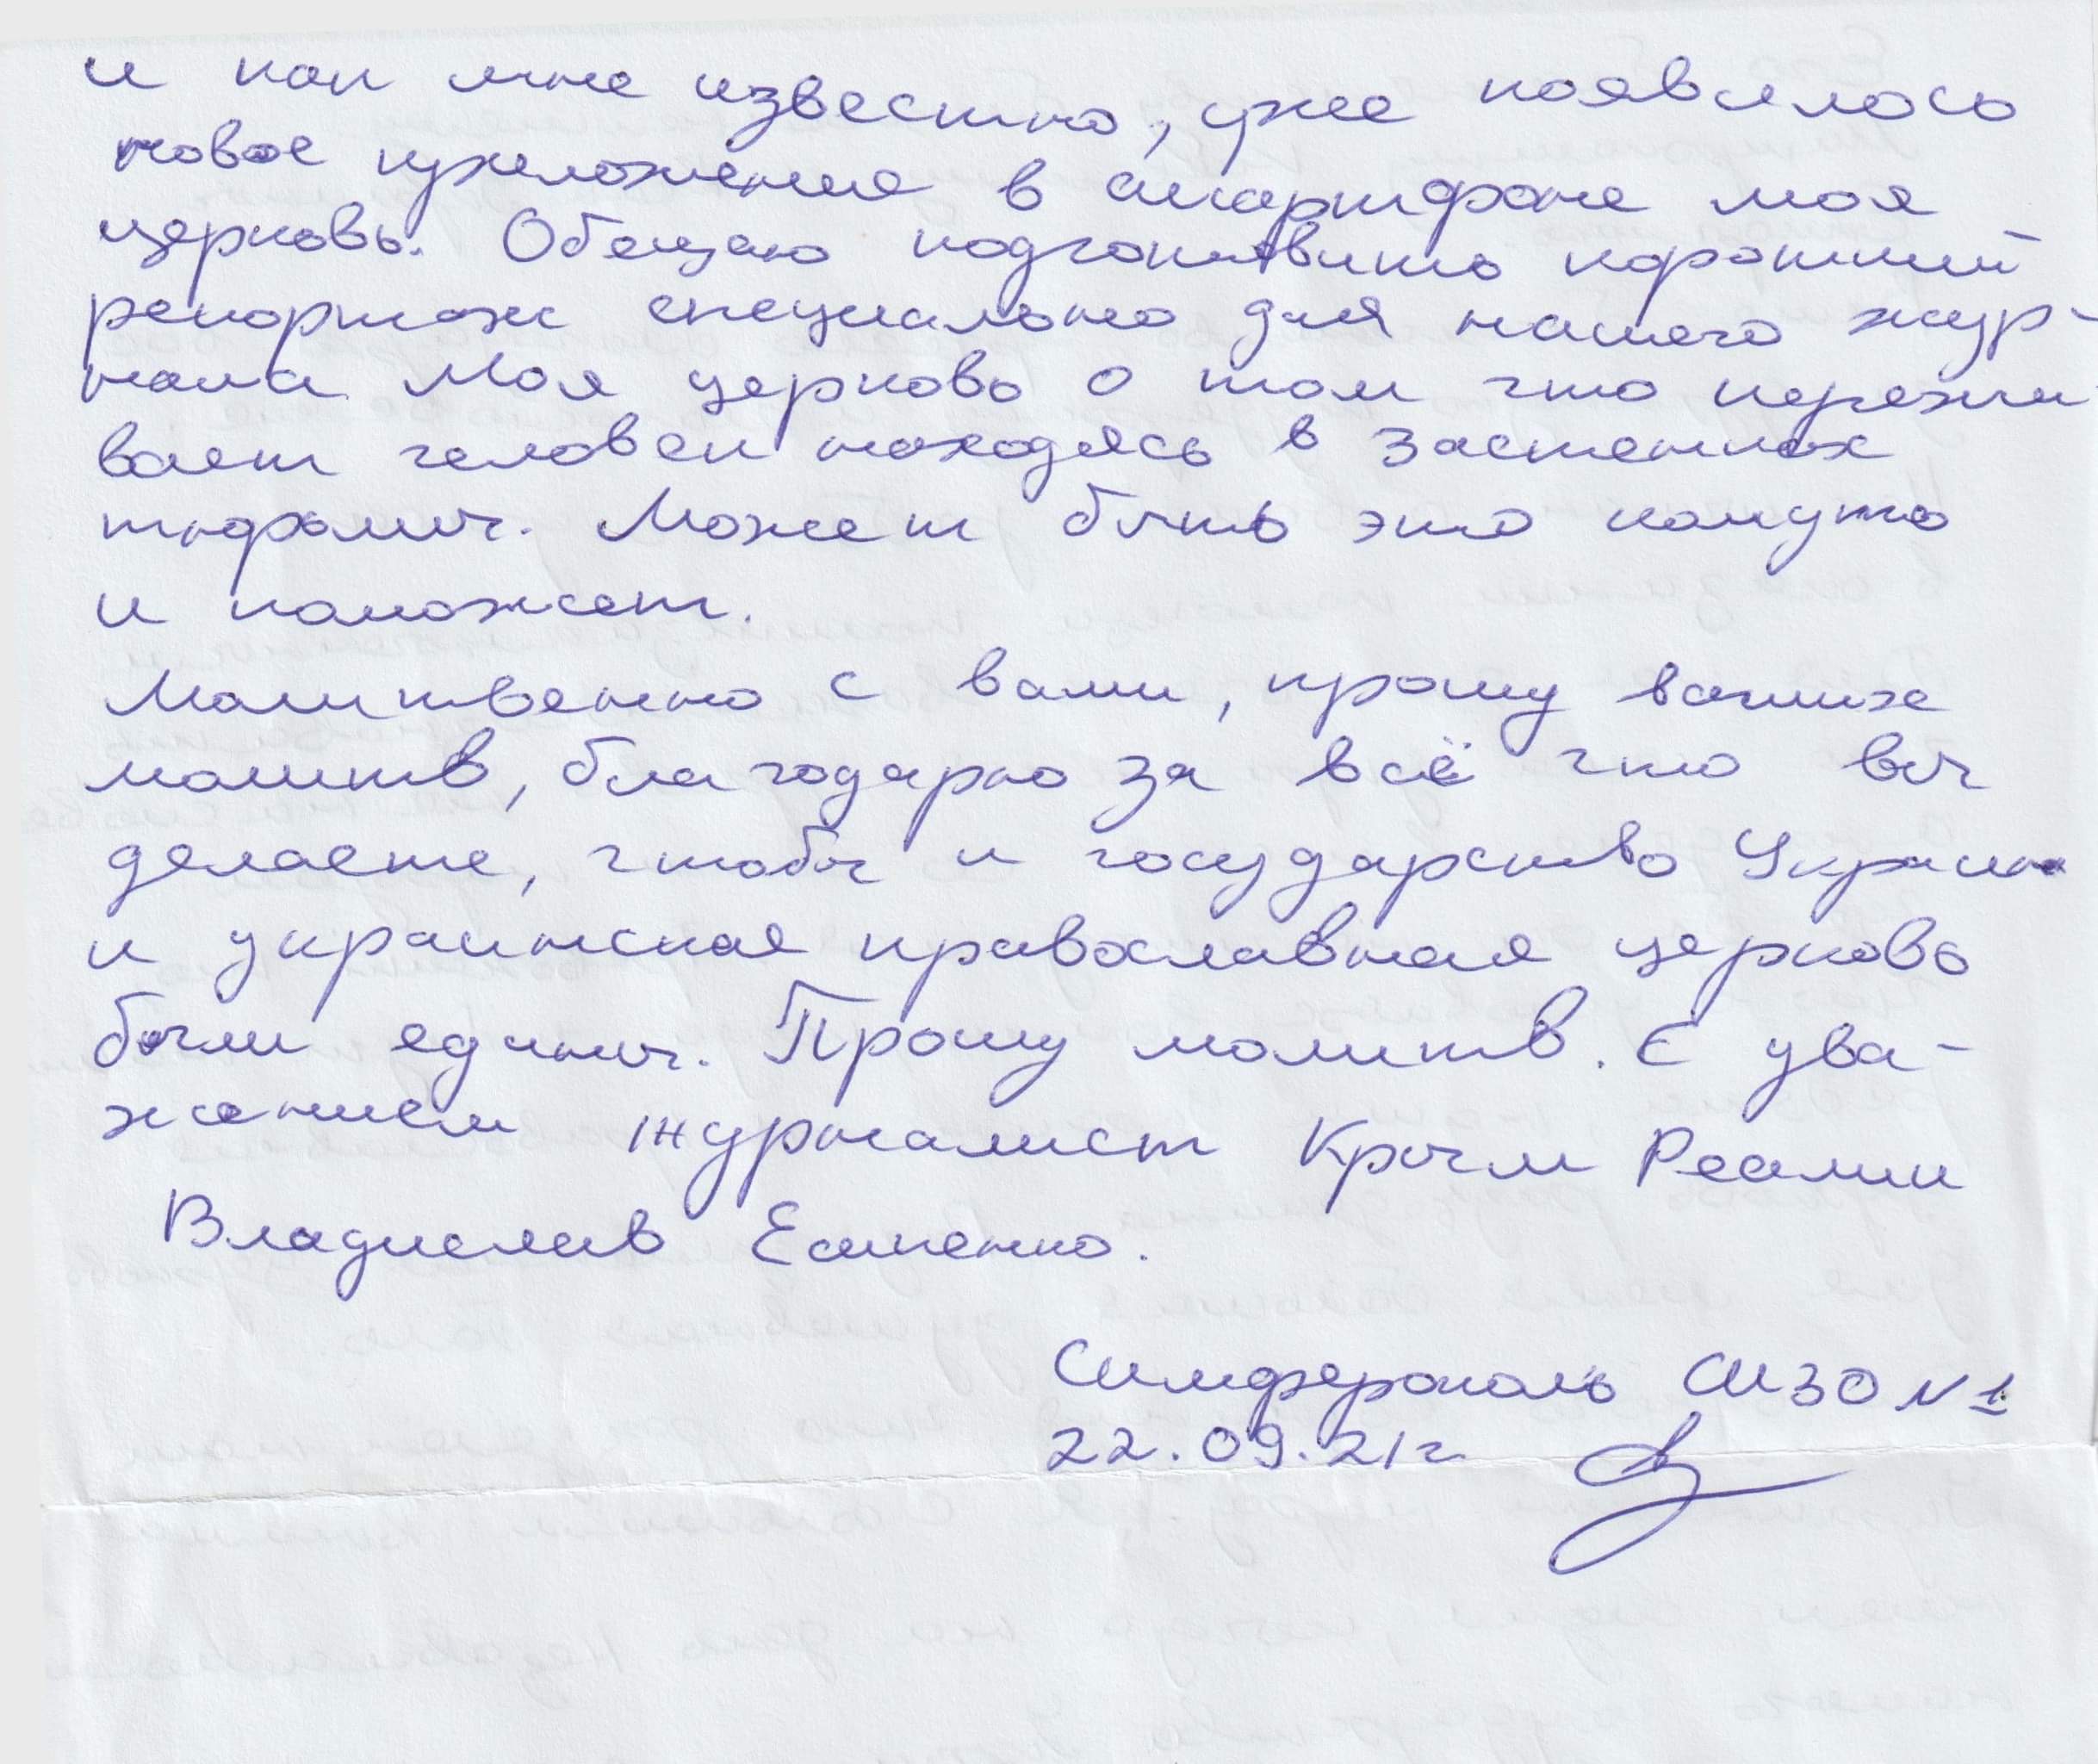 и как мне известно, уже появилось
новое приложение в смартфоне моя
церковь. Обещаю подготовить короткий
репортаж специально для нашего жур-
нала Моя церковь о том что пережи
вает человек находясь в застенках
тюрьмы. Может быть это кому то
и поможет.
Молитвенно с вами, прошу ваших
молитв, благодарю за всё что вы
делаете, чтобы и государство Украина
и украинская православная церковь
были едины. Прошу молитв. С ува-
жением журналист Крым Реалии
Владислав Есипенко.
Симферополь СИЗО N 1
22.09.21г.